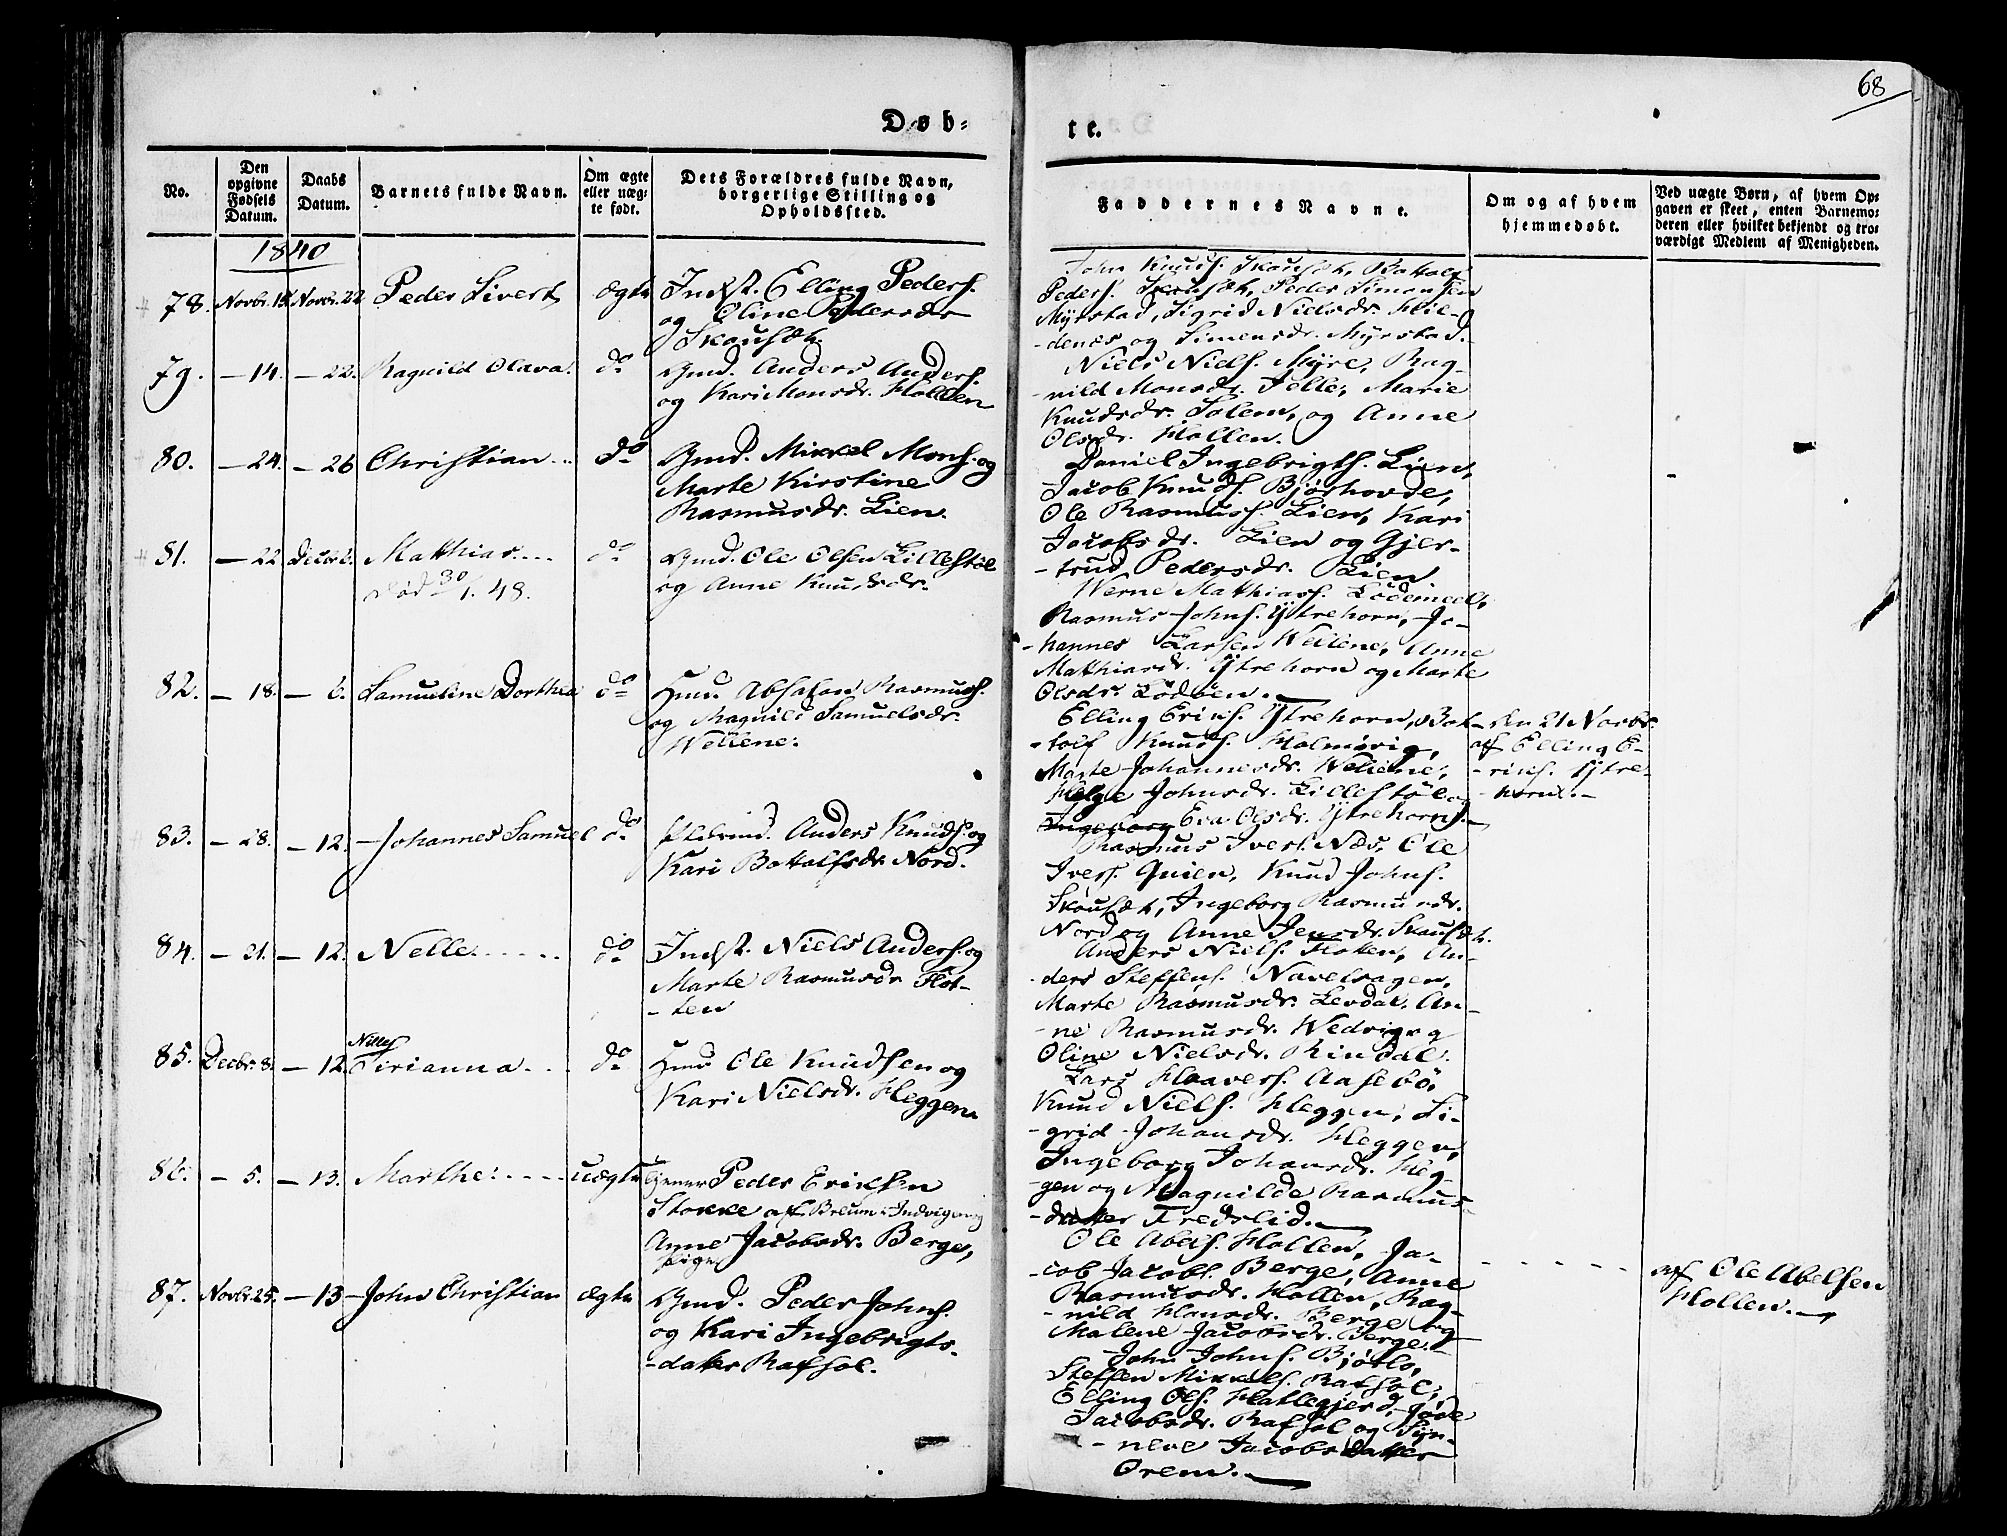 68
Døb-
te.
No.
Den opgivne Fødsels Datum.
Daabs Datum.
Barnets fulde Navn.
Om ægte eller uægte født.
Dets Forældres fulde Navn, borgerlige Stilling og Opholdssted.
Faddernes Navne.
Om og af hvem hjemmedøbt.
Ved uægte Børn, af hvem Opgaven er skeet, enten Barnemoderen eller hvilket bekjendt og troværdigt Medlem af Menigheden.
1840
78. Novbr. 15 Novbr. 22 Peder Sivert ægte Indst. Elling Peders.
og Oline Pedersdr
Skousæt.
John Knuds. Skousæt, Bottolf
Peders. Skousæt, Peder Simonsen
Myrstad, Sigrid Nielsdr. Hil-
-denæs og Simensdr. Myrstad.
79. - 14. - 22. Ragnild Olava. do Gmd. Anders Anders.
og Kari Monsdr. Hollen
Niels Niels. Myre, Rag-
-nild Monsdr. Felle, Marie
Knudsdr. Solem, og Anne
Olsdr. Hollen.
80. - 24. - 26 Christian.. do Gmd. Mikkel Mons. og
Marte Kirstine
Rasmusdr. Lien.
Daniel Ingebrigts. Lien,
Jacob Knuds. Bjørhovde,
Ole Rasmuss. Lien, Kari
Jacobsdr. Lien og Gjer-
-trud Pedersdr. Lien.
81. - 22. Decbr 6. Matthias.... do Gmd. Ole Olsen Lillestøl
død 30/1. 48. og Anne Knudsdr.
Werne Matthiass. Lødemeel,
Rasmus Johns. Ytrehorn, Jo-
-hannes Larsen Wellene, Anne
Matthiasdr. Ytrehorn og Marte
Olsdr. Lødøen.
82. - 18. - 6. Samueline Dorthea do Hmd Absalon Rasmuss.
og Magnild Samuelsdr.
Wellene.
Elling Eriks. Ytrehorn, Bot-
-tolf Knuds. Holmøvig,
Marte Johannesdr. Wellene,
Helge Johnsdr. Lillestøl og
Ingeborg Eva Olsdr. Ytrehorn.
den 21 Novbr.
af Elling E-
-riks. Ytre-
-horn.
83. - 28. - 12. Johannes Samuel do Anders Knuds. og
Kari Bottolfsdr. Nord.
Rasmus Ivers. Næs, Ole
Ivers. Quien, Knud Johns.
Skousæt, Ingeborg Rasmusdr.
Nord og Anne Jensdr. Skousæt.
84. - 21. - 12. Nelle..... do Indst. Niels Anders. og
Marte Rasmusdr Flot-
-ten
Anders Niels. Floten, An-
-ders Steffens. Navelsagen,
Marte Rasmusdr. Levdal, An-
-ne Rasmusdr. Wedvig og
Oline Nielsdr. Rindal.
85. Decbr. 8. - 12. Nelly
Sirianna... do Hmd Ole Knudsen og
Kari Nielsdr. Heggen
Lars Haavers. Aasebø,
Knud Niels. Heggen, Si-
-grid Johansdr. Heggen,
Ingeborg Johansdr. Heg-
-gen og Magnilde Rasmus-
-datter Fredslid.
86. - 5. - 13. Marthe..... uægte Peder Eriksen
Stokke af Breum i Indvigen og
Anne Jacobsdr. Berge,
Pige
Ole Abels. Hollen, Ja-
-cob Jacobs. Berge, Anne
Rasmusdr. Hollen, Rag-
-nild Hansdr. Berge og
Malene Jacobsdr. Berge.
af Ole Abelsen
Hollen.
87. Novbr. 25. - 13 John Christian ægte Gmd. Peder Johns.
og Kari Ingebrigts-
-datter Rafsol.
John Johns. Bjørlo,
Steffen Mikkels. Rafsol,
Elling Ols. Hatlegjerd,
Jacobsdr. Rafsol og Syn-
-neve Jacobsdatter
Orem.